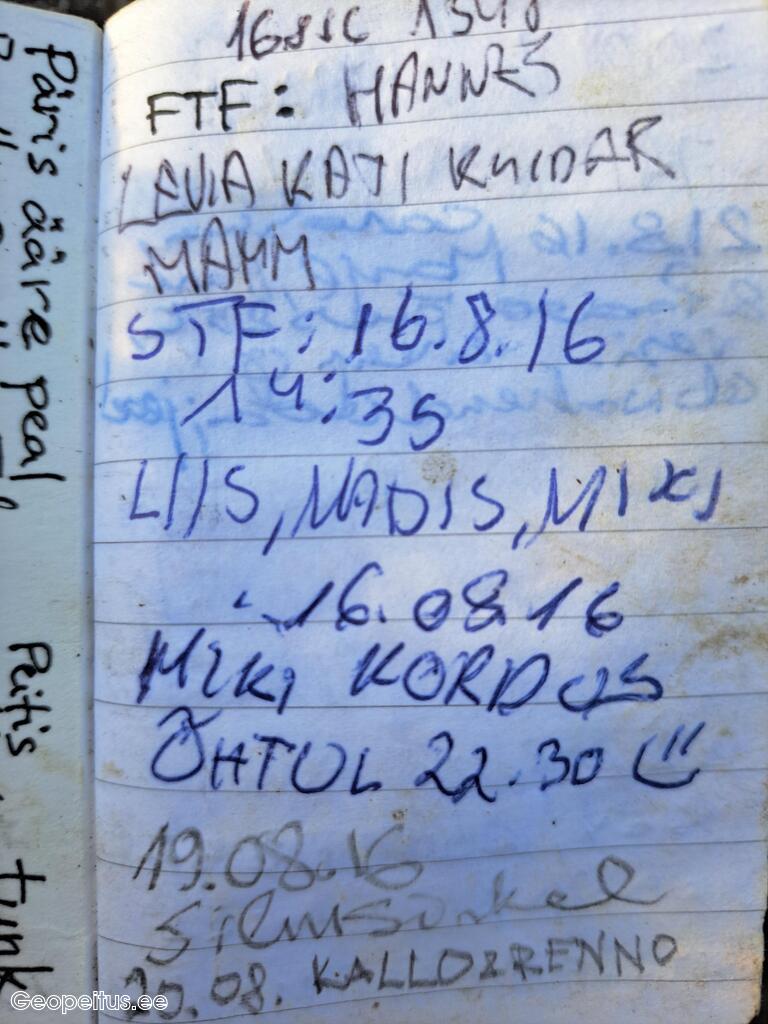 FTF: HANNES
LEVIA KATI KUIDAR
MAMM
STF: 16.8.16
14:35
LIIS, MADIS, MIKI
16.08.16
MIKI KORDUS
ÕHTUL 22.30
19.08.16
20.08. KALLO&RENNO
Päris ääre peal
Peitis
Geopeitus.ee